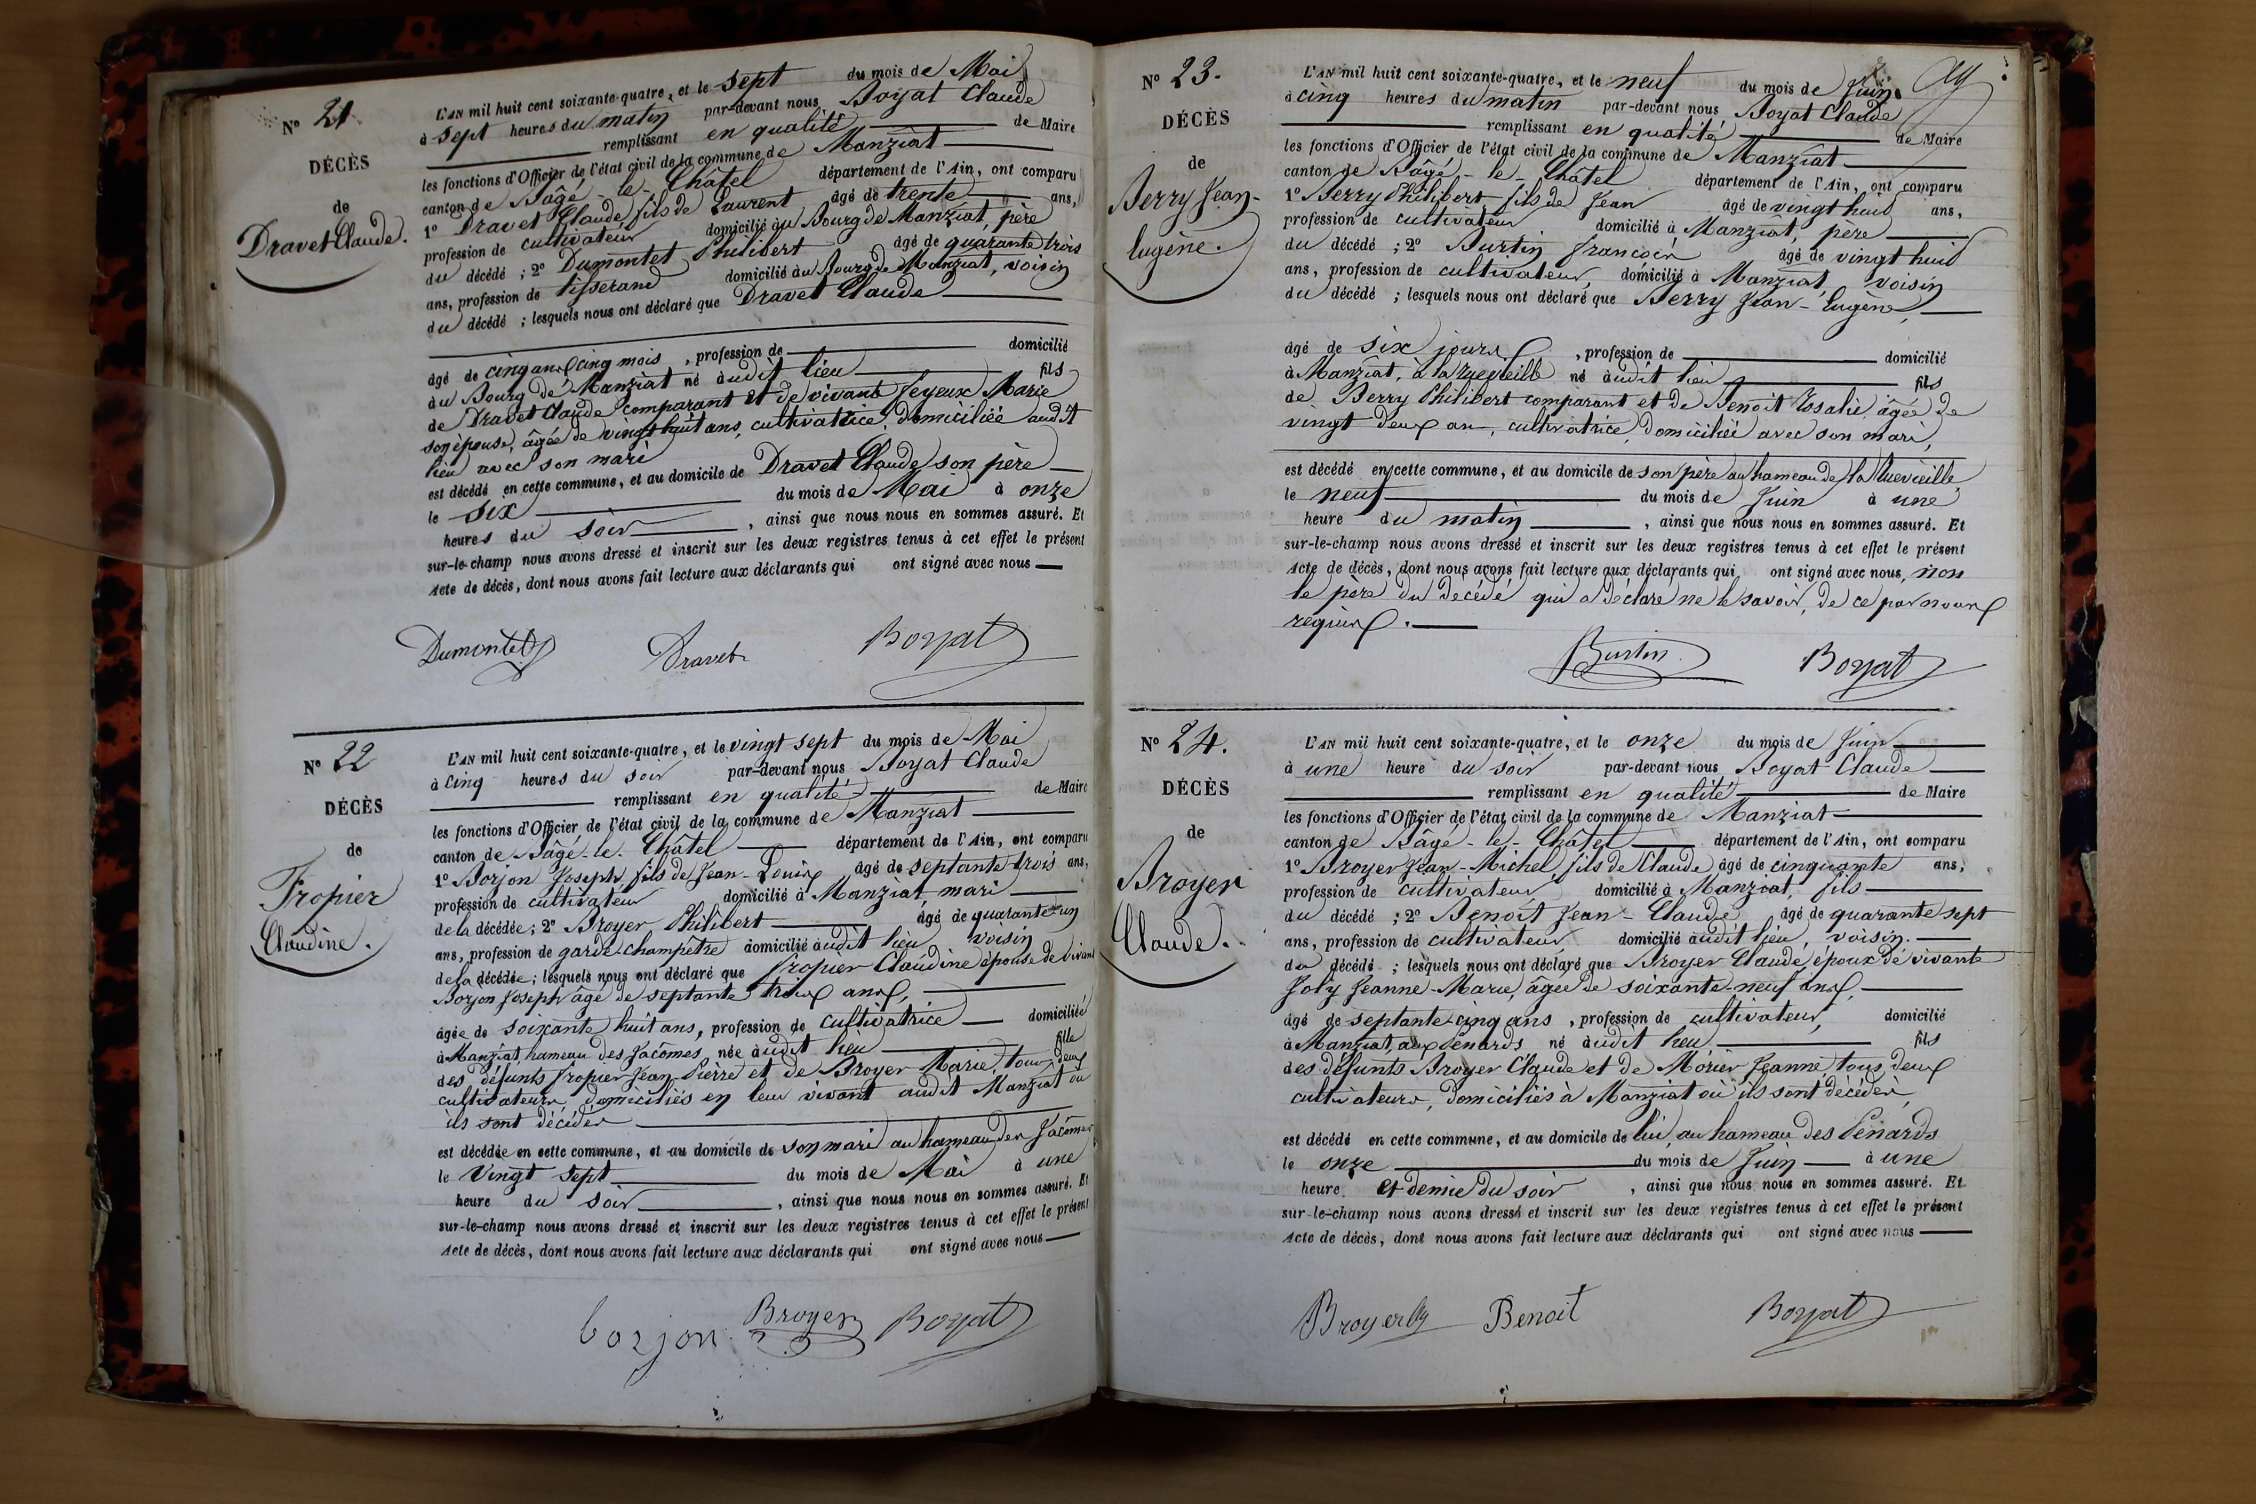 N° 21
DÉCÈS
de
Dravet Claude.
L'AN mil huit cent soixante-quatre, et le sept du mois de Mai
à sept heures du matin par-devant nous Boyat Claude
remplissant en qualité de Maire
les fonctions d'Officier de l'état civil de la commune de Manziat
canton de Bâgé-le-Châtel département de l'Ain, ont comparu
1° Dravet Claude fils de Laurent âgé de trente ans,
profession de cultivateur domicilié au Bourg de Manziat, père
du décédé ; 2° Dumontet Philibert âgé de quarante trois
ans, profession de tisserand domicilié au Bourg de Manziat, voisin
du décédé ; lesquels nous ont déclaré que Dravet Claude
âgé de cinq ans cinq mois, profession de domicilié
au Bourg de Manziat né audit lieu fils
de Dravet Claude comparant et de vivante Feyeux Marie
son épouse, âgée de vingt huit ans, cultivatrice, domiciliée audit
lieu avec son mari
est décédé en cette commune, et au domicile de Dravet Claude son père
le six du mois de Mai à onze
heures du soir, ainsi que nous nous en sommes assuré. Et
sur-le-champ nous avons dressé et inscrit sur les deux registres tenus à cet effet le présent
Acte de décès, dont nous avons fait lecture aux déclarants qui ont signé avec nous
Dumontet Dravet Boyat
N° 22
DÉCÈS
de
Fropier
Claudine.
L'AN mil huit cent soixante-quatre, et le vingt sept du mois de Mai
à cinq heures du soir par-devant nous Boyat Claude
remplissant en qualité de Maire
les fonctions d'Officier de l'état civil de la commune de Manziat
canton de Bâgé-le-Châtel département de l'Ain, ont comparu
1° Borjon Joseph fils de Jean-Louis âgé de septante trois ans,
profession de cultivateur domicilié à Manziat, mari
de la décédée ; 2° Broyer Philibert âgé de quarante un
ans, profession de garde champêtre domicilié audit lieu voisin
de la décédée ; lesquels nous ont déclaré que Fropier Claudine épouse de vivant
Borjon Joseph âgé de septante trois ans,
âgée de soixante huit ans, profession de cultivatrice domiciliée
à Manziat, hameau des Jacômes, née audit lieu fille
des défunts Fropier Jean-Pierre et de Broyer Marie, tous deux
cultivateurs, domiciliés en leur vivant audit Manziat où
ils sont décédés
est décédée en cette commune, et au domicile de son mari au hameau des Jacômes
le vingt sept du mois de Mai à une
heure du soir, ainsi que nous nous en sommes assuré. Et
sur-le-champ nous avons dressé et inscrit sur les deux registres tenus à cet effet le présent
Acte de décès, dont nous avons fait lecture aux déclarants qui ont signé avec nous
borjon Broyer Boyat
N° 23.
DÉCÈS
de
Berry Jean-
Eugène.
L'AN mil huit cent soixante-quatre, et le neuf du mois de Juin
à cinq heures du matin par-devant nous Boyat Claude
remplissant en qualité de Maire
les fonctions d'Officier de l'état civil de la commune de Manziat
canton de Bâgé-le-Châtel département de l'Ain, ont comparu
1° Berry Philibert fils de Jean âgé de vingt huit ans,
profession de cultivateur domicilié à Manziat, père
du décédé ; 2° Burtin François âgé de vingt huit
ans, profession de cultivateur, domicilié à Manziat, voisin
du décédé ; lesquels nous ont déclaré que Berry Jean-Eugène,
âgé de six jours, profession de domicilié
à Manziat, à la Ruevieille né audit lieu fils
de Berry Philibert comparant et de Benoît Rosalie, âgée de
vingt deux ans, cultivatrice, domiciliée avec son mari,
est décédé en cette commune, et au domicile de son père au hameau de la Ruevieille
le neuf du mois de Juin à une
heure du matin, ainsi que nous nous en sommes assuré. Et
sur-le-champ nous avons dressé et inscrit sur les deux registres tenus à cet effet le présent
Acte de décès, dont nous avons fait lecture aux déclarants qui ont signé avec nous, non
le père du décédé qui a déclaré ne le savoir, de ce par nous
requis.
Burtin Boyat
N° 24.
DÉCÈS
de
Broyer
Claude.
L'AN mil huit cent soixante-quatre, et le onze du mois de Juin
à une heure du soir par-devant nous Boyat Claude
remplissant en qualité de Maire
les fonctions d'Officier de l'état civil de la commune de Manziat
canton de Bâgé-le-Châtel département de l'Ain, ont comparu
1° Broyer Jean-Michel, fils de Claude âgé de cinquante ans,
profession de cultivateur, domicilié à Manziat, fils
du décédé ; 2° Benoît Jean-Claude âgé de quarante sept
ans, profession de cultivateur domicilié audit lieu, voisin.
du décédé ; lesquels nous ont déclaré que Broyer Claude, époux de vivante
Joly Jeanne-Marie, âgée de soixante-neuf ans,
âgé de septante-cinq ans, profession de cultivateur, domicilié
à Manziat, aux Pénards né audit lieu fils
des défunts Broyer Claude et de Morier Jeanne, tous deux
cultivateurs, domiciliés à Manziat où ils sont décédés,
est décédé en cette commune, et au domicile de lui, au hameau des Pénards
le onze du mois de Juin à une
heure et demie du soir, ainsi que nous nous en sommes assuré. Et
sur-le-champ nous avons dressé et inscrit sur les deux registres tenus à cet effet le présent
Acte de décès, dont nous avons fait lecture aux déclarants qui ont signé avec nous
Broyer Benoit Boyat